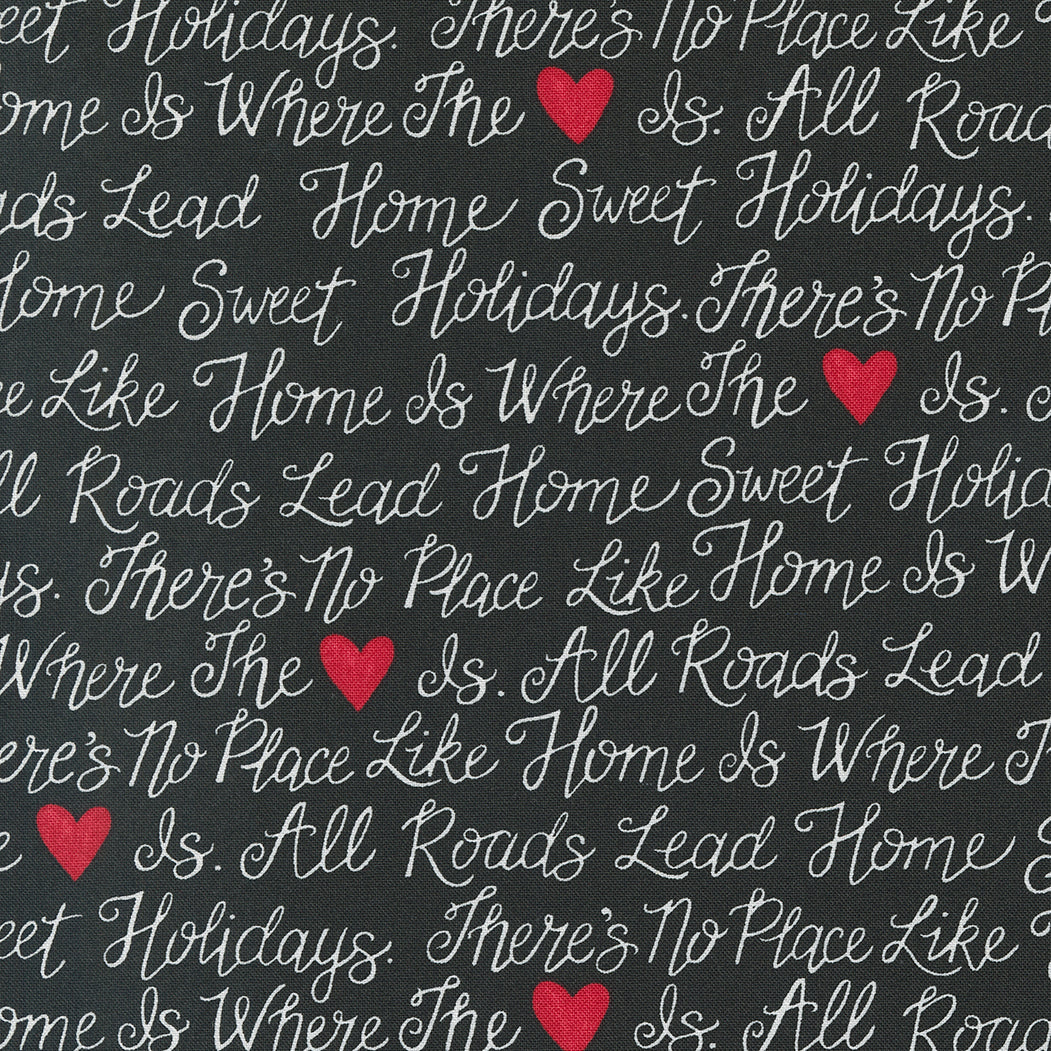 eet Holidays. There's No Place Like
ome Is Where The ❤ Is. All Roads
ads Lead Home Sweet Holidays.
Home Sweet Holidays. There's No Pl
e Like Home Is Where The ❤ Is.
ll Roads Lead Home Sweet Holid
ys. There's No Place Like Home Is W
Where The ❤ Is. All Roads Lead
ere's No Place Like Home Is Where T
e ❤ Is. All Roads Lead Home S
eet Holidays. There's No Place Like
ome Is Where The ❤ Is. All Roads